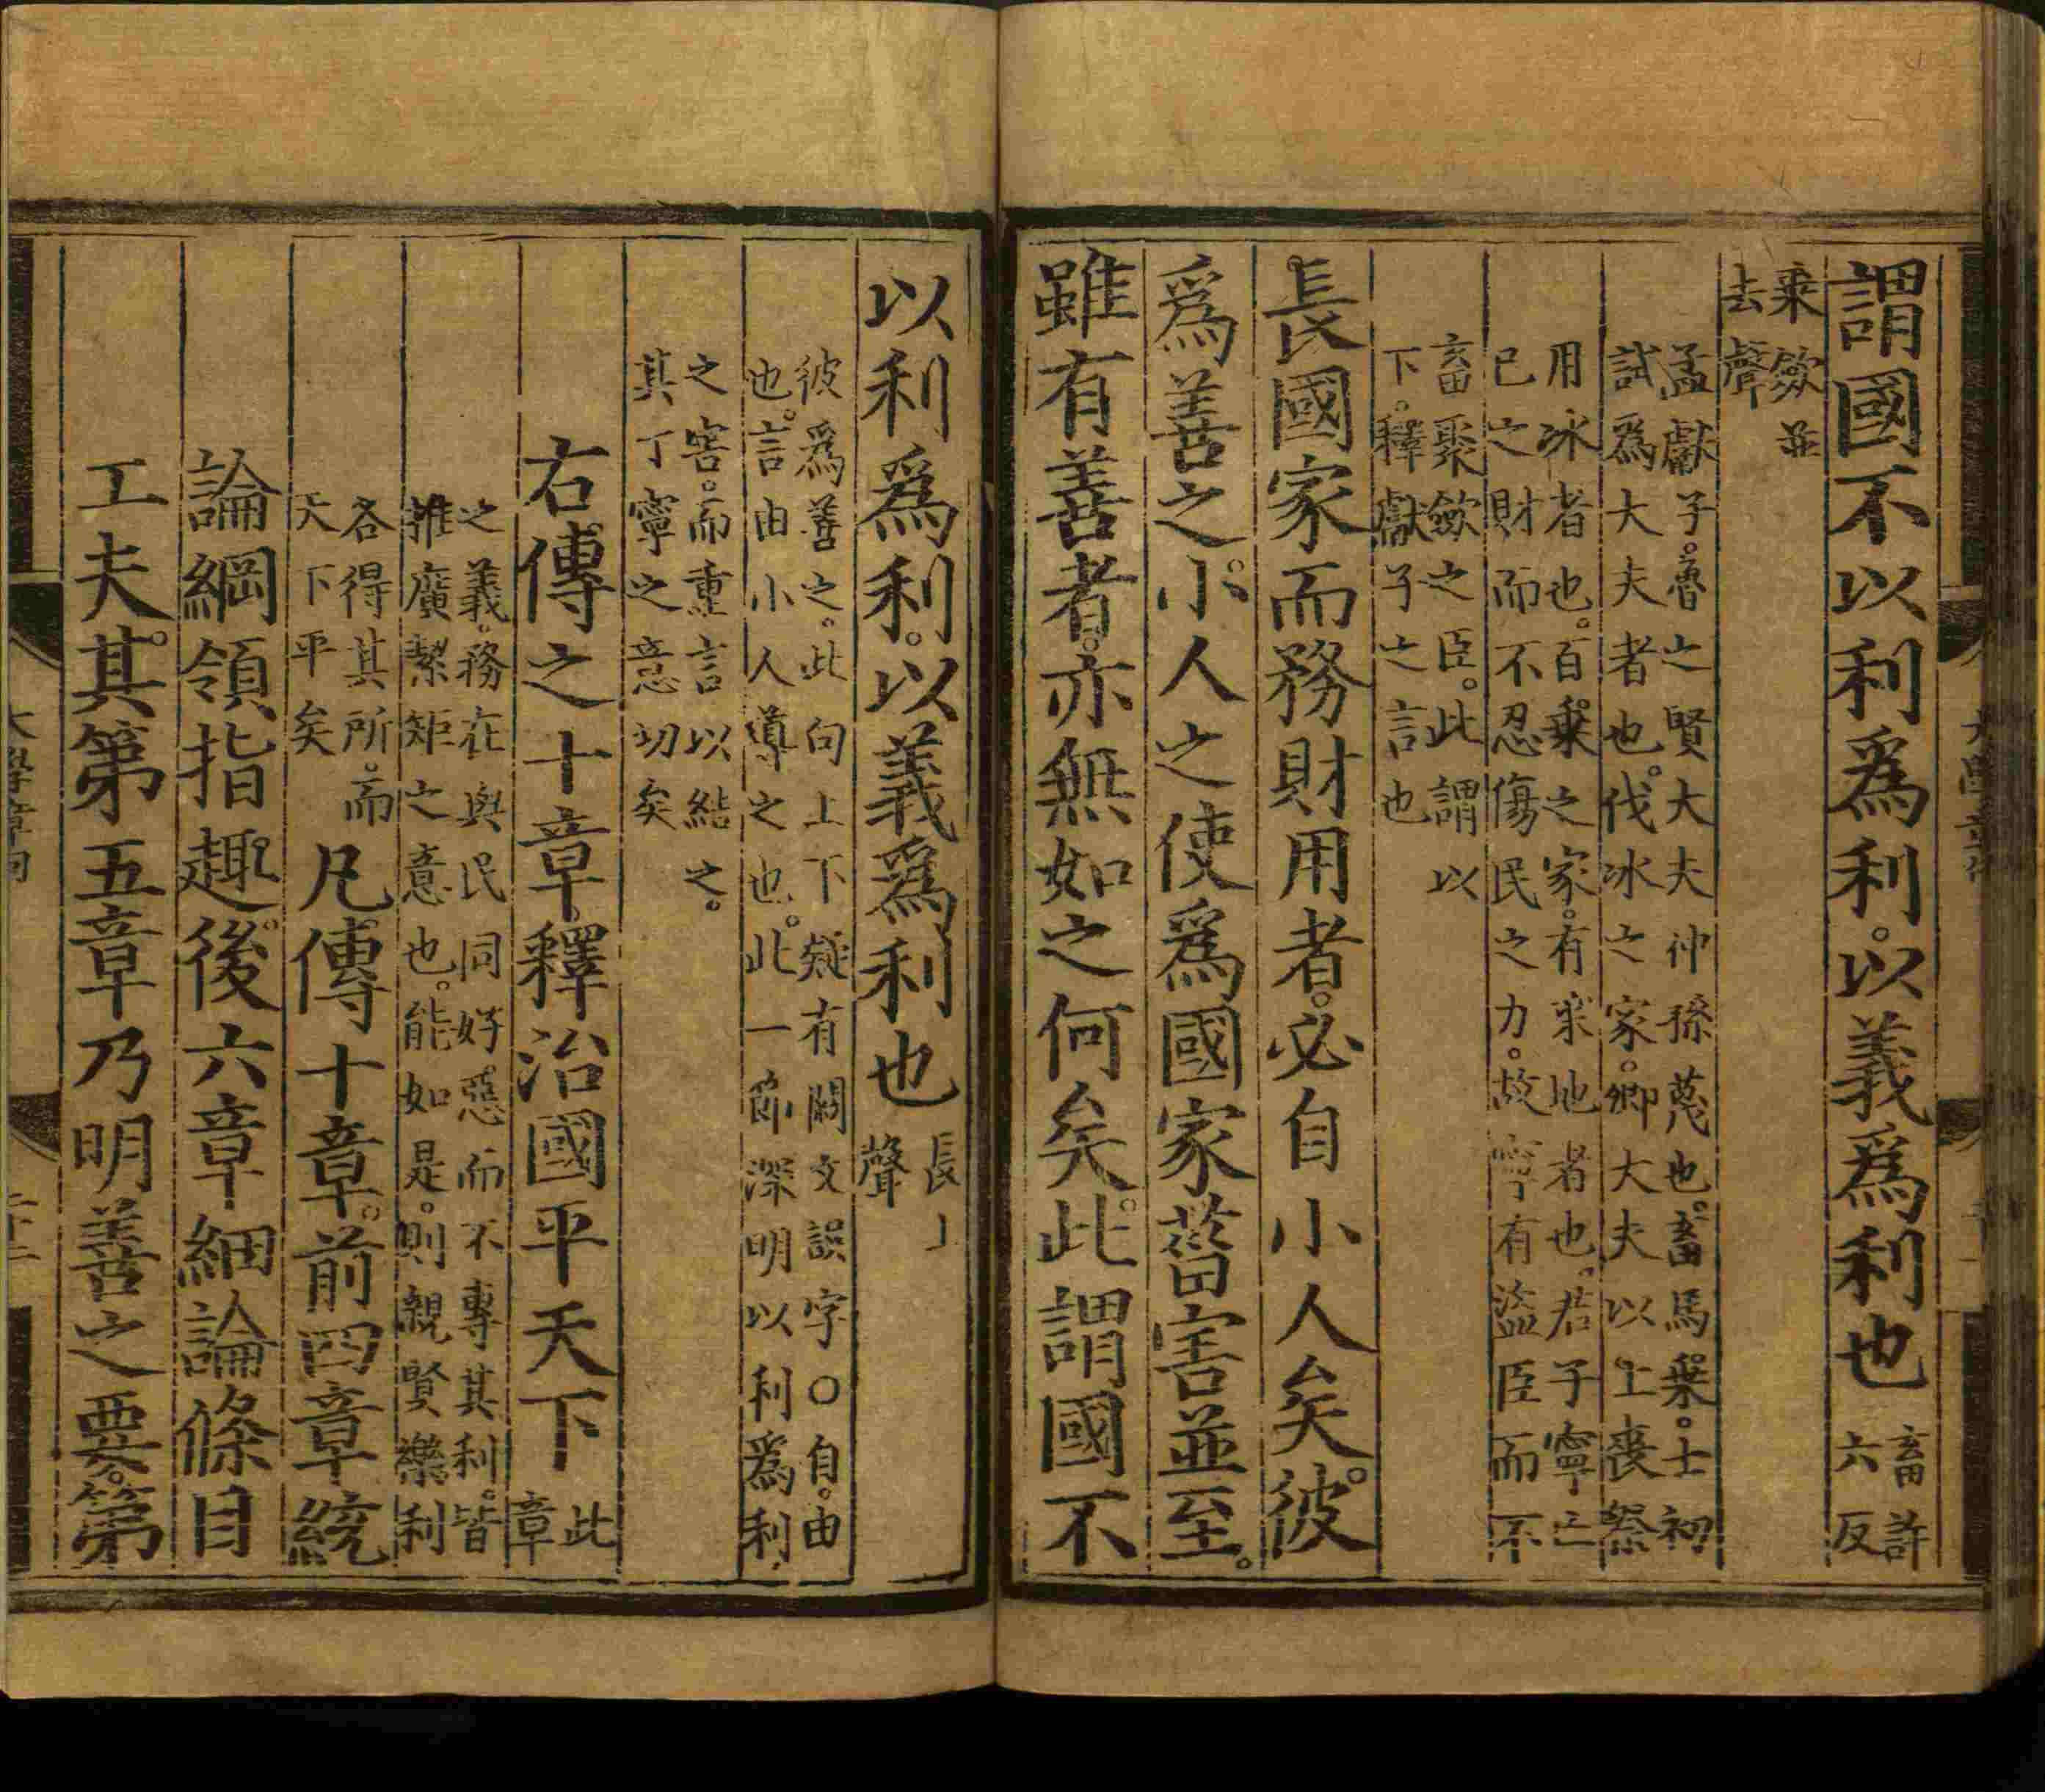 謂國不以利爲利。以義爲利也畜許六反
乘斂並去聲
孟獻子。魯之賢大夫仲孫蔑也。畜馬乘。士初
試爲大夫者也。伐冰之家。卿大夫以上喪祭
用冰者也。百乘之家。有采地者也。君子寧亡
己之財而不忍傷民之力。故寧有盜臣而不
畜聚斂之臣。此謂以
下。釋獻子之言也
長國家而務財用者。必自小人矣。彼
爲善之。小人之使爲國家菑害並至。
雖有善者。亦無如之何矣。此謂國不
以利爲利。以義爲利也長上聲
彼爲善之。此句上下疑有闕文誤字○自。由
也。言由小人導之也。此一節深明以利爲利
之害。而重言以結之。
其丁寧之意切矣
右傳之十章。釋治國平天下此章
之義。務在與民同好惡而不專其利。皆
推廣絜矩之意也。能如是。則親賢樂利
各得其所。而
天下平矣
凡傳十章。前四章統
論綱領指趣。後六章細論條目
工夫。其第五章乃明善之要。第
大學章句
二十二